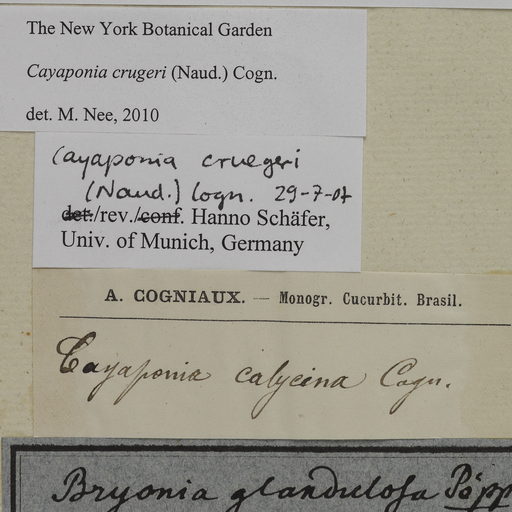 The New York Botanical Garden
Cayaponia crugeri (Naud.) Cogn.
det. M. Nee, 2010
Cayaponia cruegeri
(Naud.) Cogn. 29-7-07
det./rev./conf. Hanno Schäfer,
Univ. of Munich, Germany
A. COGNIAUX. — Monogr. Cucurbit. Brasil.
Cayaponia calycina Cogn.
Bryonia glandulosa Pöpp